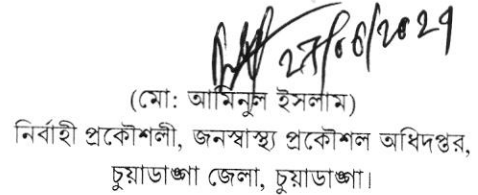 27/06/2021
(মো: আমিনুল ইসলাম)
নির্বাহী প্রকৌশলী, জনস্বাস্থ্য প্রকৌশল অধিদপ্তর,
চুয়াডাঙ্গা জেলা, চুয়াডাঙ্গা।